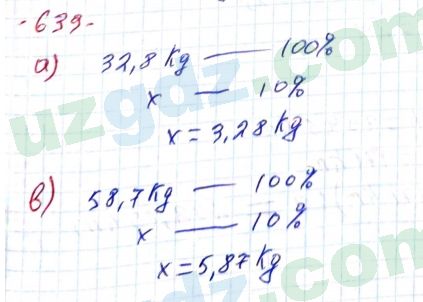 -639-
a) 32,8 Kg — 100%
x — 10%
x = 3,28 Kg
b) 58,7 Kg — 100%
x — 10%
x = 5,87 Kg
uzgdz.com